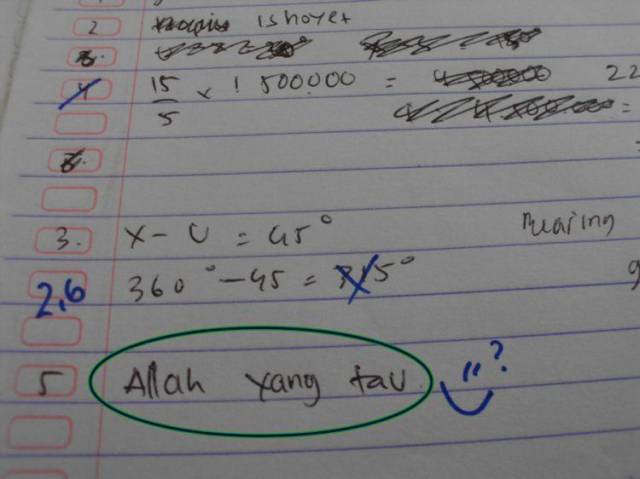 2 ishoyet
4 15/5 x 1 500.000 = 22
3. X - U = 45° Bearing
2,6 360° - 45 = 315° 9
5 Allah yang tau. ?